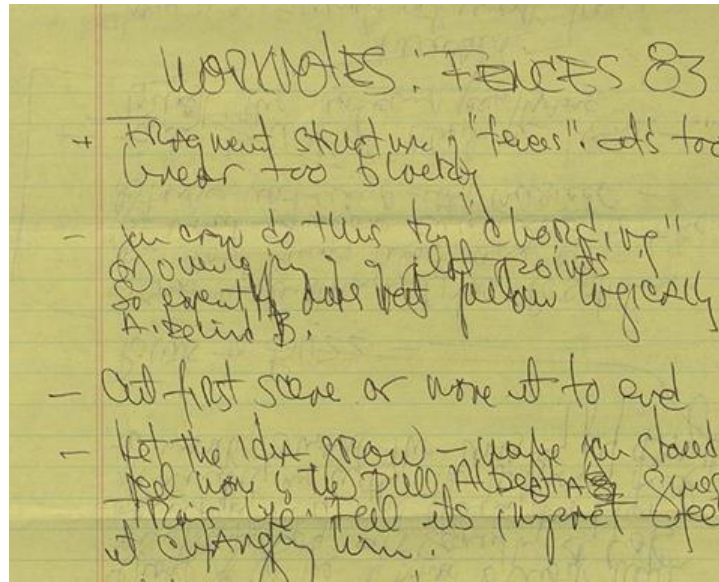 WORKNOTES: FENCES 83
+ Fragment structure of "fences". it's too
linear too blocky
- you can do this by "chording"
or overlapping of plot points
so event B does not follow logically
A. behind B.
- Cut first scene or move it to end
- Let the idea grow – maybe you should
feel more of the pull Alberta gives
Troy's life. Feel its impact feel
it changing him.